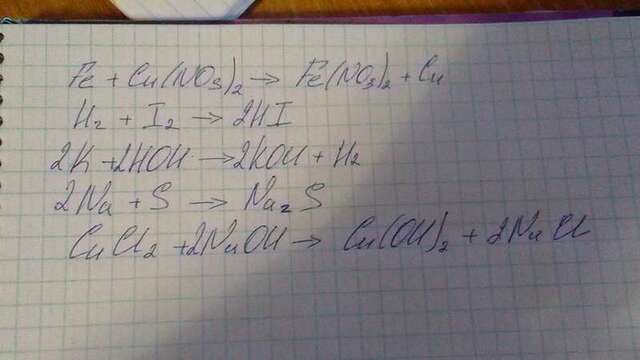 Fe + Cu(NO3)2 → Fe(NO3)2 + Cu
H2 + I2 → 2HI
2K + 2HOH → 2KOH + H2
2Na + S → Na2S
CuCl2 + 2NaOH → Cu(OH)2 + 2NaCl